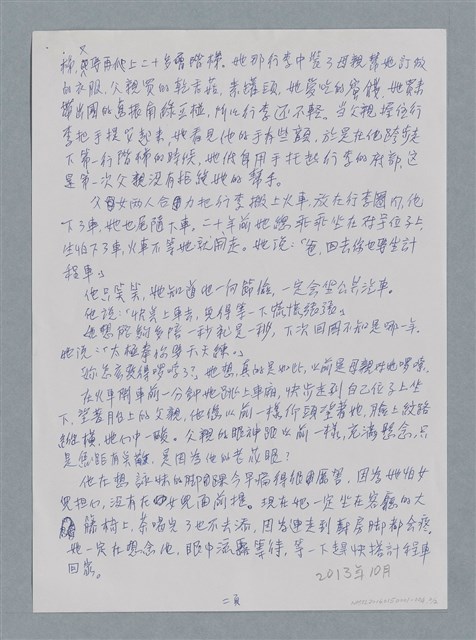 梯,
再爬上二十多層階梯。她那行李中裝了母親幫她訂做
的衣服,父親買的乾香菇、素罐頭,她愛吃的蜜餞,她買來
帶出國的
綠豆糕,所以行李還不輕。當父親握住行
李把手提策起來,她看見他的手有些顫,於是在他跨步走
下第一行階梯的時候,她俯身用手托起行李的底部,這
是第一次父親沒有拒絕她的幫手。
父女兩人合力把行李搬上火車,放在行李圈內,他
下了車,她也尾隨下車。二十年前她總乖乖坐在對号位子上,
生怕下了車,火車不等她就開走。她說:「爸,回去你也要坐計
程車。」
他只笑笑,她知道他一向節儉,一定会坐公共汽車。
他說:「快點上車去,免得等一下慌慌張張。」
她想陪夠多陪一秒就是一秒,下次回國不知是哪一年。
她說:「太極拳你要天天練。」
妳怎麼變得嘮嗦了?她想,真的是如此,以前是母親對她嘮嗦。
在火車開車前一分鐘她跳上車廂,快步走到自己位子上坐
下,望著月台上的父親,他像以前一樣仰頭望著她,臉上紋路
縱橫,她心中一酸。父親的眼神跟以前一樣,充滿懸念,只
是焦距有異,是因為他的老花眼?
他在想詠
的腳踝今早痛得很厲害,因為她怕女
兒担心,沒有在女兒面前提。現在她一定坐在客廳的大
藤椅上,茶喝完了也不去添,因為連走到廚房腳都会痠。
她一定在想念他,眼中流露等待,等一下趕快搭計程車
回家。
2013年10月
二頁